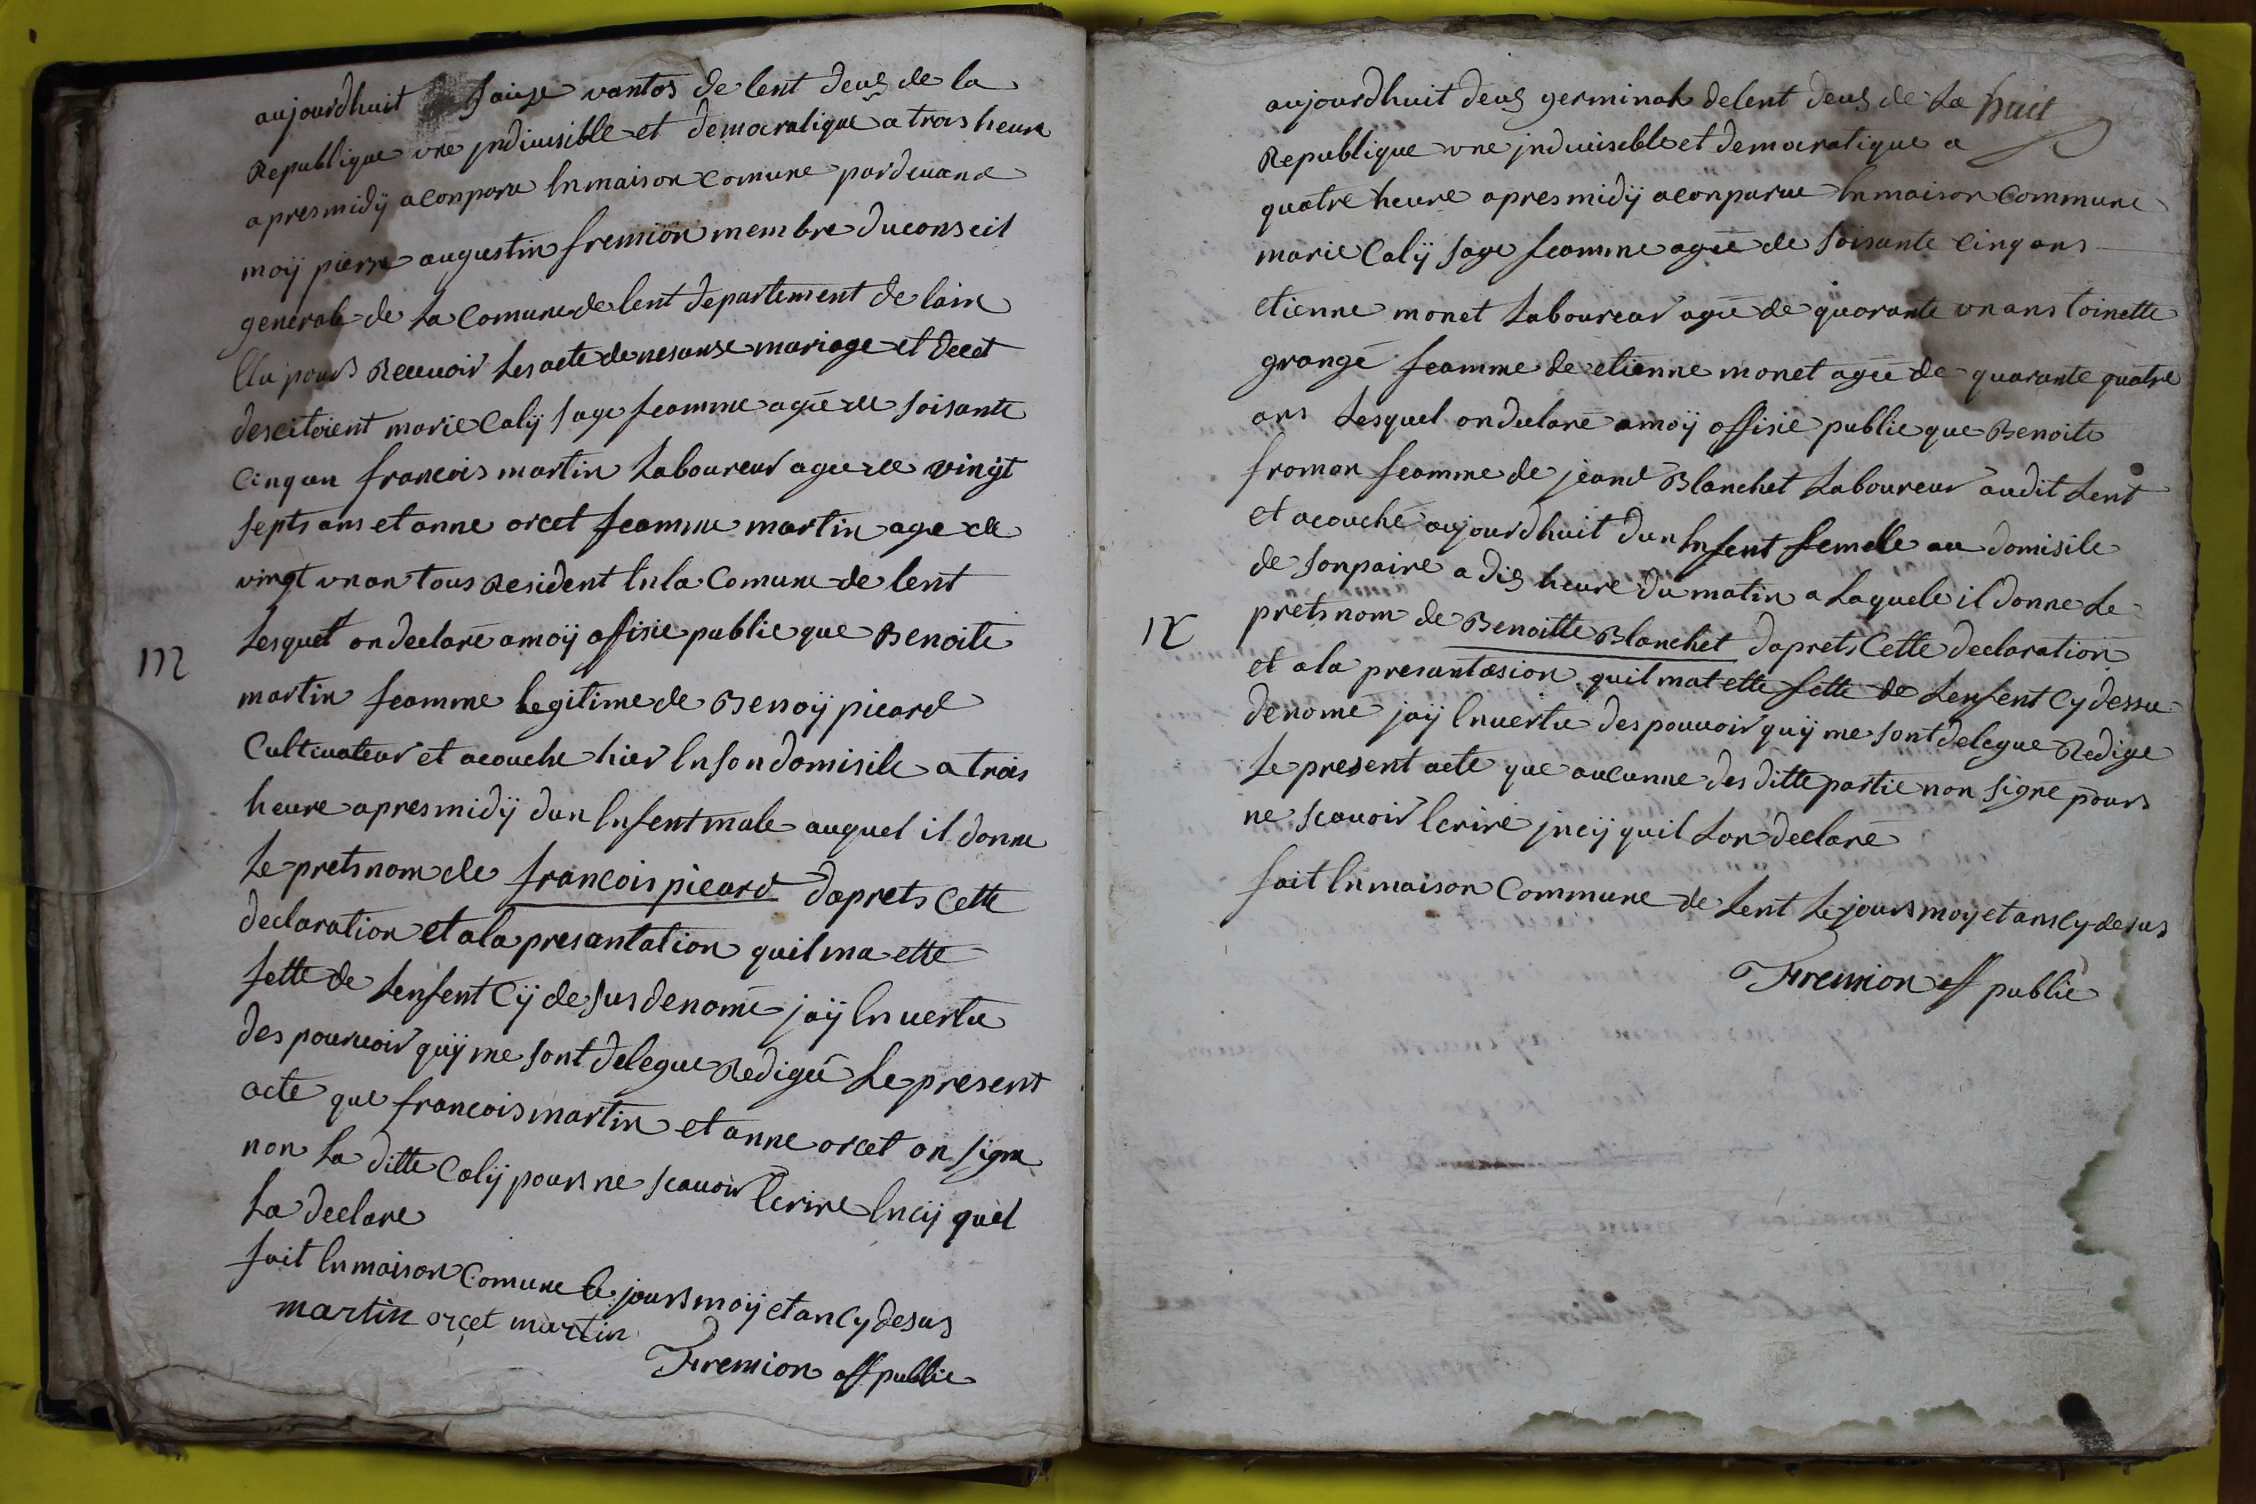 aujourdhuit saize vantos de lent deus de la
Republique une jndiuisible et democratique a trois heure
apres midÿ a conparu en maison comune pardeuand
moÿ pierre augustin fremion membre du conseil
generale de la Comune de lent departement de lain
Elu pours Receuoir les acte de nesanse mariage et decet
des citoient marie Calÿ sage feamme agée de soisante
Cinq an francois martin Laboureur agee de vingt
septs ans et anne orcet feamme martin agee de
vingt un an tous Resident en la Comune de lent
Lesquel on declaré a moÿ offisie public que Benoite
m
martin feamme Legitime de Benoÿ picard
Cultiuateur et acouche hier en son domisile a trois
heure apres midÿ dun Enfent male auquel il donne
Le prets nom de francois picard daprets Cette
declaration et a la presantation quil ma ette
fette de Lenfent Cÿ desus denomé jaÿ en uertu
des pouruoir quÿ me sont delegue Redigé Le present
acte que francois martin et anne orcet on signe
non La ditte Calÿ pours ne scauoir Ecrire encÿ quel
La declare
fait en maison Comune le jours moÿ et an Cy desus
martin orcet martin
Fremion off public
aujourdhuit deus germinal de lent deus de La huit
Republique une jndiuisible et democratique a
quatre heure apres midÿ a conparue en maison Commune
marie Calÿ sage feamme agée de soisante Cinq ans
etienne monet Laboureur agée de quarante un ans toinette
grangé feamme de etienne monet agée de quarante quatre
ans Lesquel on declaré a moÿ offisié public que Benoite
froman feamme de jeand Blanchet Laboureur audit Lent
et acouché aujourdhuit dun Enfent femelle au domisile
de son paire a dis heure du matin a Laquele il donne Le
prets nom de Benoitte Blanchet daprets Cette declaration
et a la presantasion quil mat ette fette de Lenfent Cy dessu
denomé jaÿ en uertu des pouuoir quÿ me sont delegue Redige
Le present acte que aucunne des ditte partie non signe pours
ne scauoir Ecrire jncÿ quil Lon declaré
fait en maison Commune de Lent Le jours moy et ans Cy desus
Fremion off public